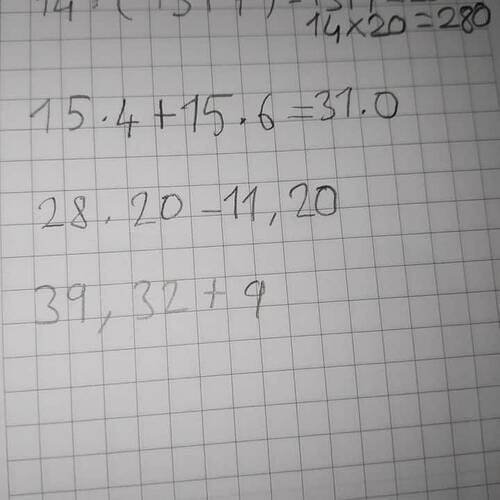 14×20=280
15.4+15.6=31.0
28.20-11,20
39,32+9